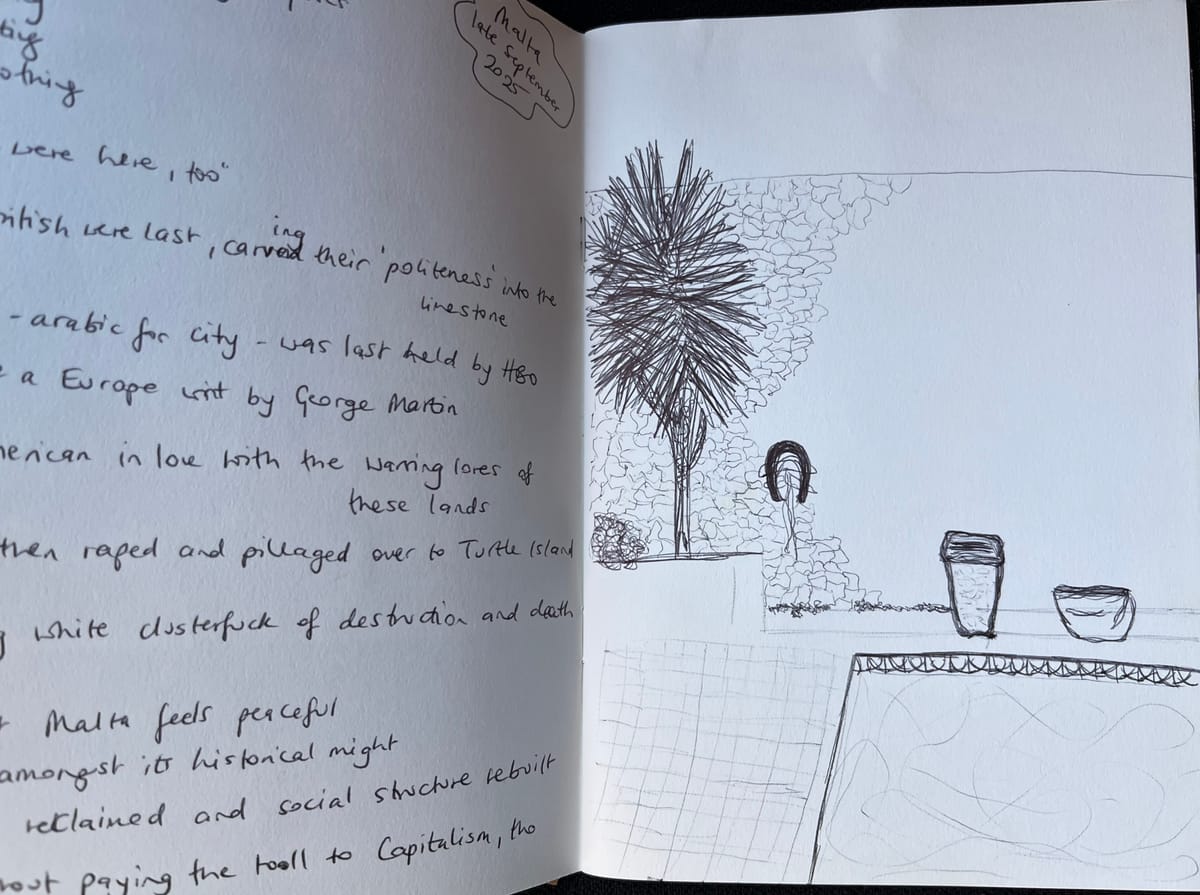 Malta
late September
2025
tig
othing
were here, too"
ritish were last, carving their 'politeness' into the
limestone
- arabic for city - was last held by HBO
a Europe writ by George Martin
merican in love with the warring lores of
these lands
then raped and pillaged over to Turtle Island
g white clusterfuck of destruction and death
Malta feels peaceful
amongst its historical might
reclaimed and social structure rebuilt
hout paying the tooll to Capitalism, tho